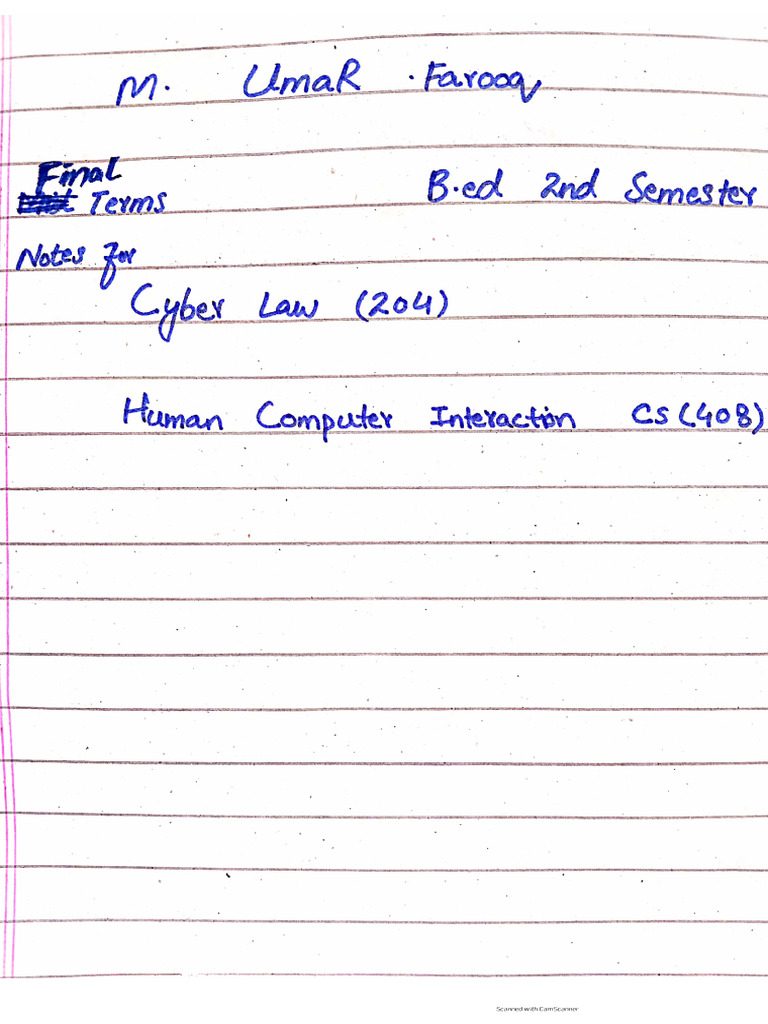 M. UmaR . Farooq
Final
Terms B.ed 2nd Semester
Notes for
Cyber Law (204)
Human Computer Interaction CS (408)
Scanned with CamScanner